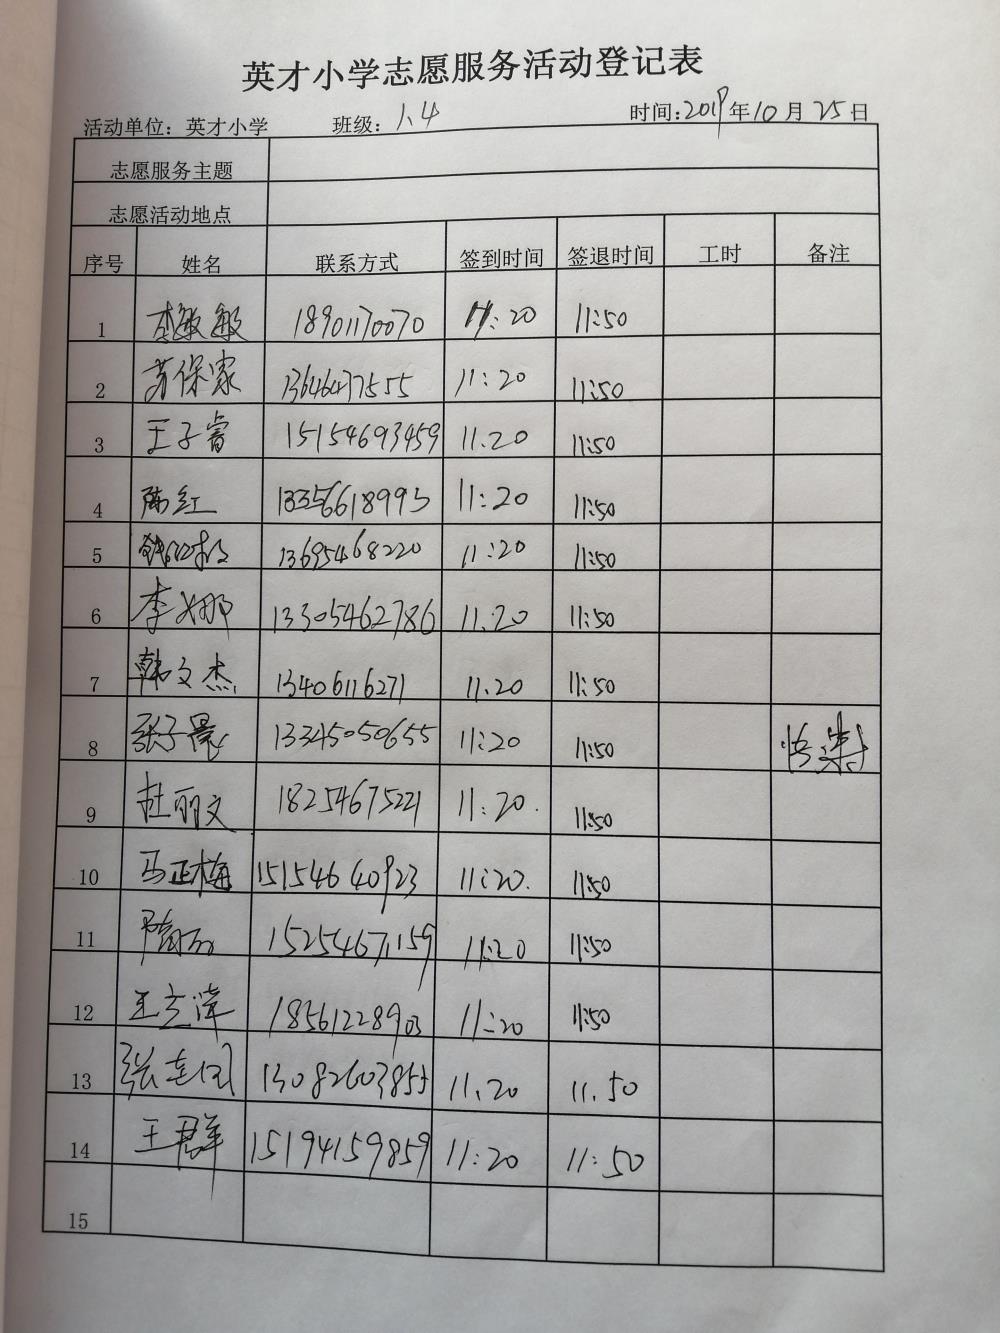 英才小学志愿服务活动登记表
活动单位：英才小学 班级：1.4 时间：2019年10月25日
志愿服务主题
志愿活动地点
序号 姓名 联系方式 签到时间 签退时间 工时 备注
1 李敏敏 18901170070 11:20 11:50
2 苏保家 13646477555 11:20 11:50
3 王子睿 15154693459 11.20 11:50
4 陈红 13356618993 11:20 11:50
5 13695468220 11:20 11:50
6 李娜 13305462786 11.20 11:50
7 韩文杰 13406116271 11.20 11:50
8 张子晨 13345050655 11:20 11:50
9 杜丽文 18254675221 11:20. 11:50
10 马正梅 15154640923 11:20. 11:50
11 15254671159 11:20 11:50
12 王立萍 18561228903 11:20 11:50
13 13082603855 11.20 11.50
14 王君群 15194159859 11:20 11:50
15